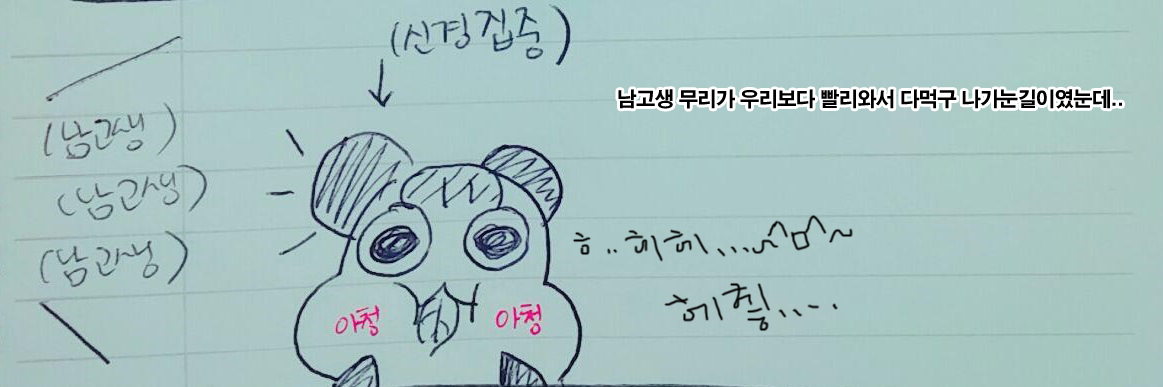 (신경집중)
남고생 무리가 우리보다 빨리와서 다먹구 나가눈길이였눈데..
(남고생)
(남고생)
(남고생)
ㅎ..히히...^ㅁ^~
헤힁....
아청 아청